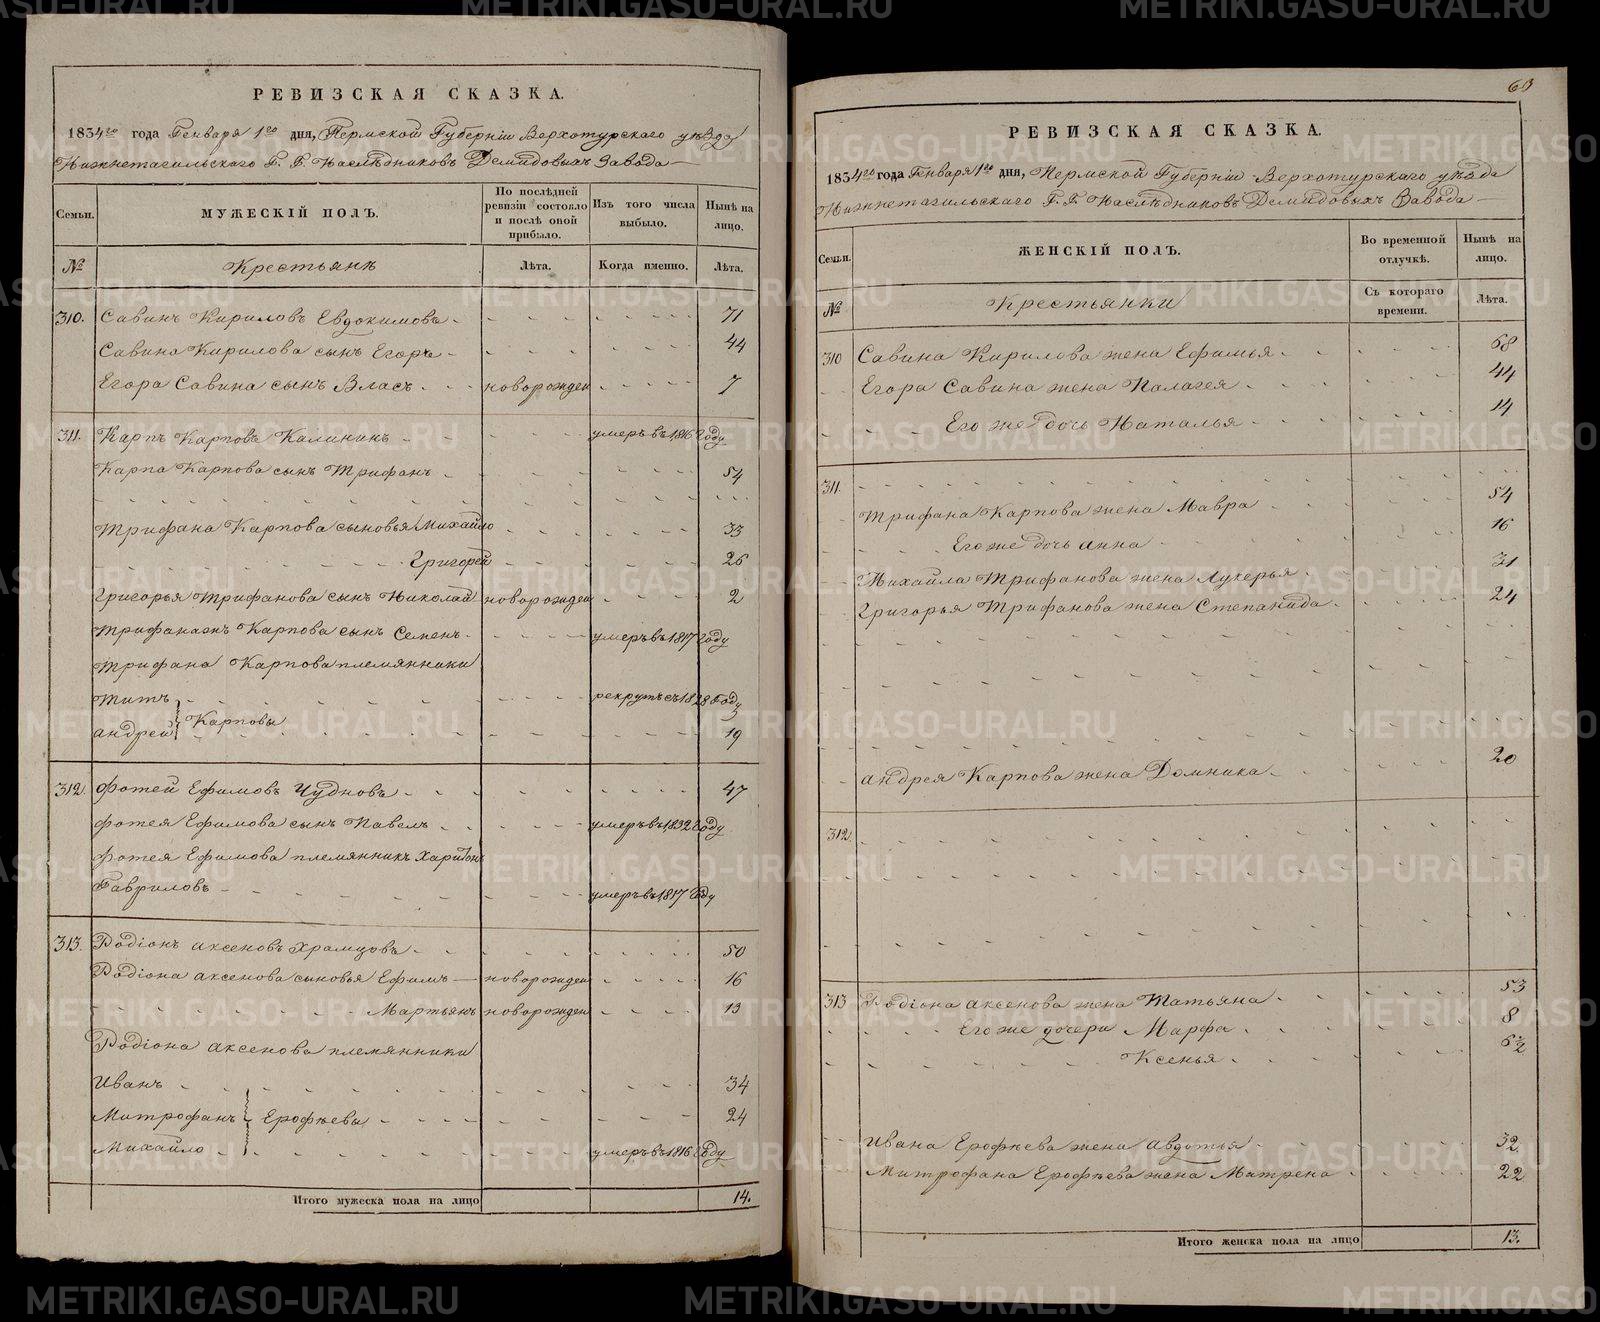 РЕВИЗСКАЯ СКАЗКА.
1834го года Генваря 1го дня, Пермской Губерніи Верхотурскаго уѣзда
Нижнетагильскаго Г. Г. Наслѣдниковъ Демидовыхъ Завода
Семьи. МУЖЕСКІЙ ПОЛЪ. По послѣдней ревизіи состояло и послѣ оной прибыло. Изъ того числа выбыло. Нынѣ на лицо.
№ Крестьянъ Лѣта. Когда именно. Лѣта.
310. Савинъ Кириловъ Евдокимовъ 71
Савина Кирилова сынъ Егоръ 44
Егора Савина сынъ Власъ новорожден 7
311. Карпъ Карповъ Калининъ умеръ въ 1816 году
Карпа Карпова сынъ Трифанъ 54
Трифана Карпова сыновья Михайло 33
Григорей 26
Григорья Трифанова сынъ Николай новорожден 2
Трифанажъ Карпова сынъ Семенъ умеръ въ 1817 году
Трифана Карпова племянники
Титъ рекрутъ съ 1828 году
Андрей Карповы 19
312. Фотей Ефимовъ Чудновъ 47
Фотея Ефимова сынъ Павелъ умеръ въ 1832 году
Фотея Ефимова племянникъ Харитонъ
Гавриловъ умеръ въ 1817 году
313. Родіонъ Аксеновъ Храмцовъ 50
Родіона Аксенова сыновья Ефимъ новорожден 16
Мартьянъ новорожден 13
Родіона Аксенова племянники
Иванъ 34
Митрофанъ Ерофѣевы 24
Михайло умеръ въ 1816 году
Итого мужеска пола на лицо 14.
63
РЕВИЗСКАЯ СКАЗКА.
1834го года Генваря 1го дня, Пермской Губерніи Верхотурскаго уѣзда
Нижнетагильскаго Г. Г. Наслѣдниковъ Демидовыхъ Завода
Семьи. ЖЕНСКІЙ ПОЛЪ. Во временной отлучкѣ. Нынѣ на лицо.
№ Крестьянки Съ котораго времени. Лѣта.
310 Савина Кирилова жена Ефимья 68
Егора Савина жена Палагея 44
Его же дочь Наталья 14
311.
Трифана Карпова жена Мавра 54
Его же дочь Анна 16
Михайла Трифанова жена Лукерья 31
Григорья Трифанова жена Степанида 24
Андрея Карпова жена Домника 20
312.
313 Родіона Аксенова жена Татьяна 53
Его же дочери Марфа 8
Ксенья 6½
Ивана Ерофѣева жена Авдотья 32
Митрофана Ерофѣева жена Матрена 22
Итого женска пола на лицо 13.
METRIKI.GASO-URAL.RU